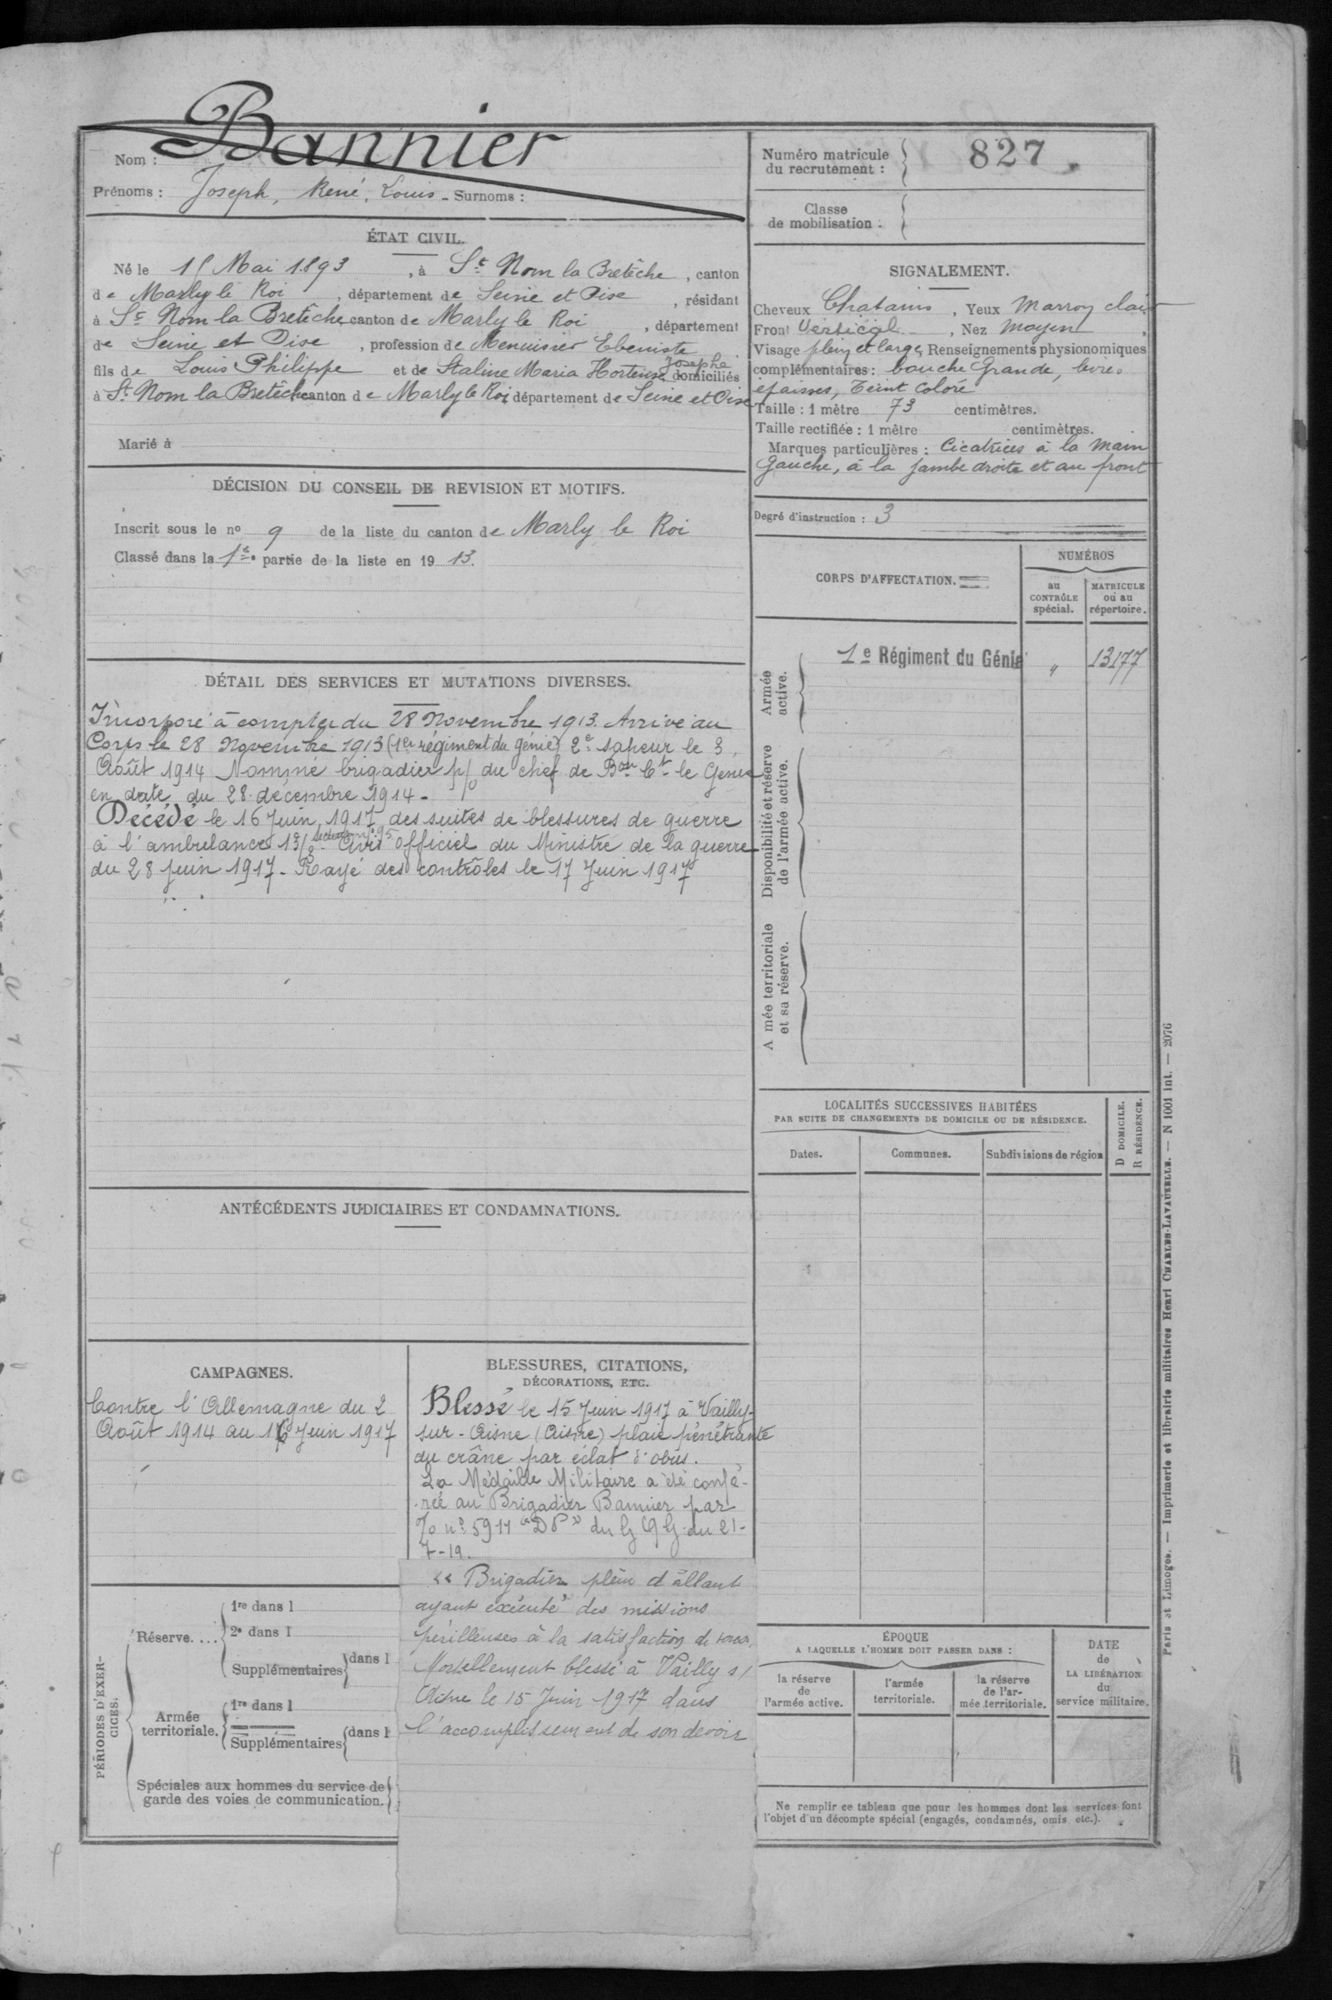 Nom : Bannier
Prénoms : Joseph, René, Louis - Surnoms :
Numéro matricule du recrutement : 827
Classe de mobilisation :
ÉTAT CIVIL.
Né le 15 Mai 1893, à St Nom la Bretêche, canton
de Marly le Roi, département de Seine et Oise, résidant
à St Nom la Bretêche canton de Marly le Roi, département
de Seine et Oise, profession de Menuisier Ebeniste
fils de Louis Philippe et de Staline Maria Hortense Josephe domiciliés
à St Nom la Bretêche canton de Marly le Roi département de Seine et Oise
Marié à
SIGNALEMENT.
Cheveux Chatains, Yeux Marron clair
Front Vertical, Nez moyen,
Visage plein et large, Renseignements physionomiques
complémentaires : bouche Grande, levres
épaisses, Teint Coloré
Taille : 1 mètre 73 centimètres.
Taille rectifiée : 1 mètre centimètres.
Marques particulières : Cicatrices à la main
Gauche, à la jambe droite et au front
Degré d'instruction : 3
DÉCISION DU CONSEIL DE REVISION ET MOTIFS.
Inscrit sous le no 9 de la liste du canton de Marly le Roi
Classé dans la 1re partie de la liste en 1913.
CORPS D'AFFECTATION.
NUMÉROS
au CONTRÔLE spécial.
MATRICULE ou au répertoire.
Armée active.
1e Régiment du Génie " 13177
Disponibilité et réserve de l'armée active.
A mée territoriale et sa réserve.
DÉTAIL DES SERVICES ET MUTATIONS DIVERSES.
Incorporé à compter du 28 Novembre 1913. Arrivé au
Corps le 28 Novembre 1913 (1er régiment du génie) 2e sapeur le 3
Août 1914 Nommé brigadier p/ du chef de Bon Ct le Génie
en date du 28 decembre 1914 -
Décédé le 16 Juin 1917 des suites de blessures de guerre
à l'ambulance 13/ secteur no 95 Avis officiel du Ministre de la guerre
du 28 juin 1917 - Rayé des contrôles le 17 Juin 1917
LOCALITÉS SUCCESSIVES HABITÉES
PAR SUITE DE CHANGEMENTS DE DOMICILE OU DE RÉSIDENCE.
Dates. Communes. Subdivisions de région
D DOMICILE.
R RÉSIDENCE.
ANTÉCÉDENTS JUDICIAIRES ET CONDAMNATIONS.
CAMPAGNES.
Contre l'Allemagne du 2
Août 1914 au 16 Juin 1917
BLESSURES, CITATIONS,
DÉCORATIONS, ETC.
Blessé le 15 Juin 1917 à Vailly-
sur-Aisne (Aisne) plaie pénétrante
du crâne par éclat d'obus.
La Médaille Militaire a été confé-
rée au Brigadier Bannier par
"D" du G Q G du 21-
7-19.
"Brigadier plein d'allant
ayant exécuté des missions
périlleuses à la satisfaction de tous,
Mortellement blessé à Vailly s/
Aisne le 15 Juin 1917 dans
l'accomplissement de son devoir
PÉRIODES D'EXERCICES.
Réserve.... 1re dans l
2e dans l
Supplémentaires dans l
Armée territoriale. 1re dans l
Supplémentaires dans l
Spéciales aux hommes du service de
garde des voies de communication.
ÉPOQUE
A LAQUELLE L'HOMME DOIT PASSER DANS :
la réserve de l'armée active.
l'armée territoriale.
la réserve de l'armée territoriale.
DATE de LA LIBÉRATION du service militaire.
Ne remplir ce tableau que pour les hommes dont les services font
l'objet d'un décompte spécial (engagés, condamnés, omis etc.).
Paris et Limoges. — Imprimerie et librairie militaires Henri CHARLES-LAVAUZELLE. — N 1001 int. — 2076